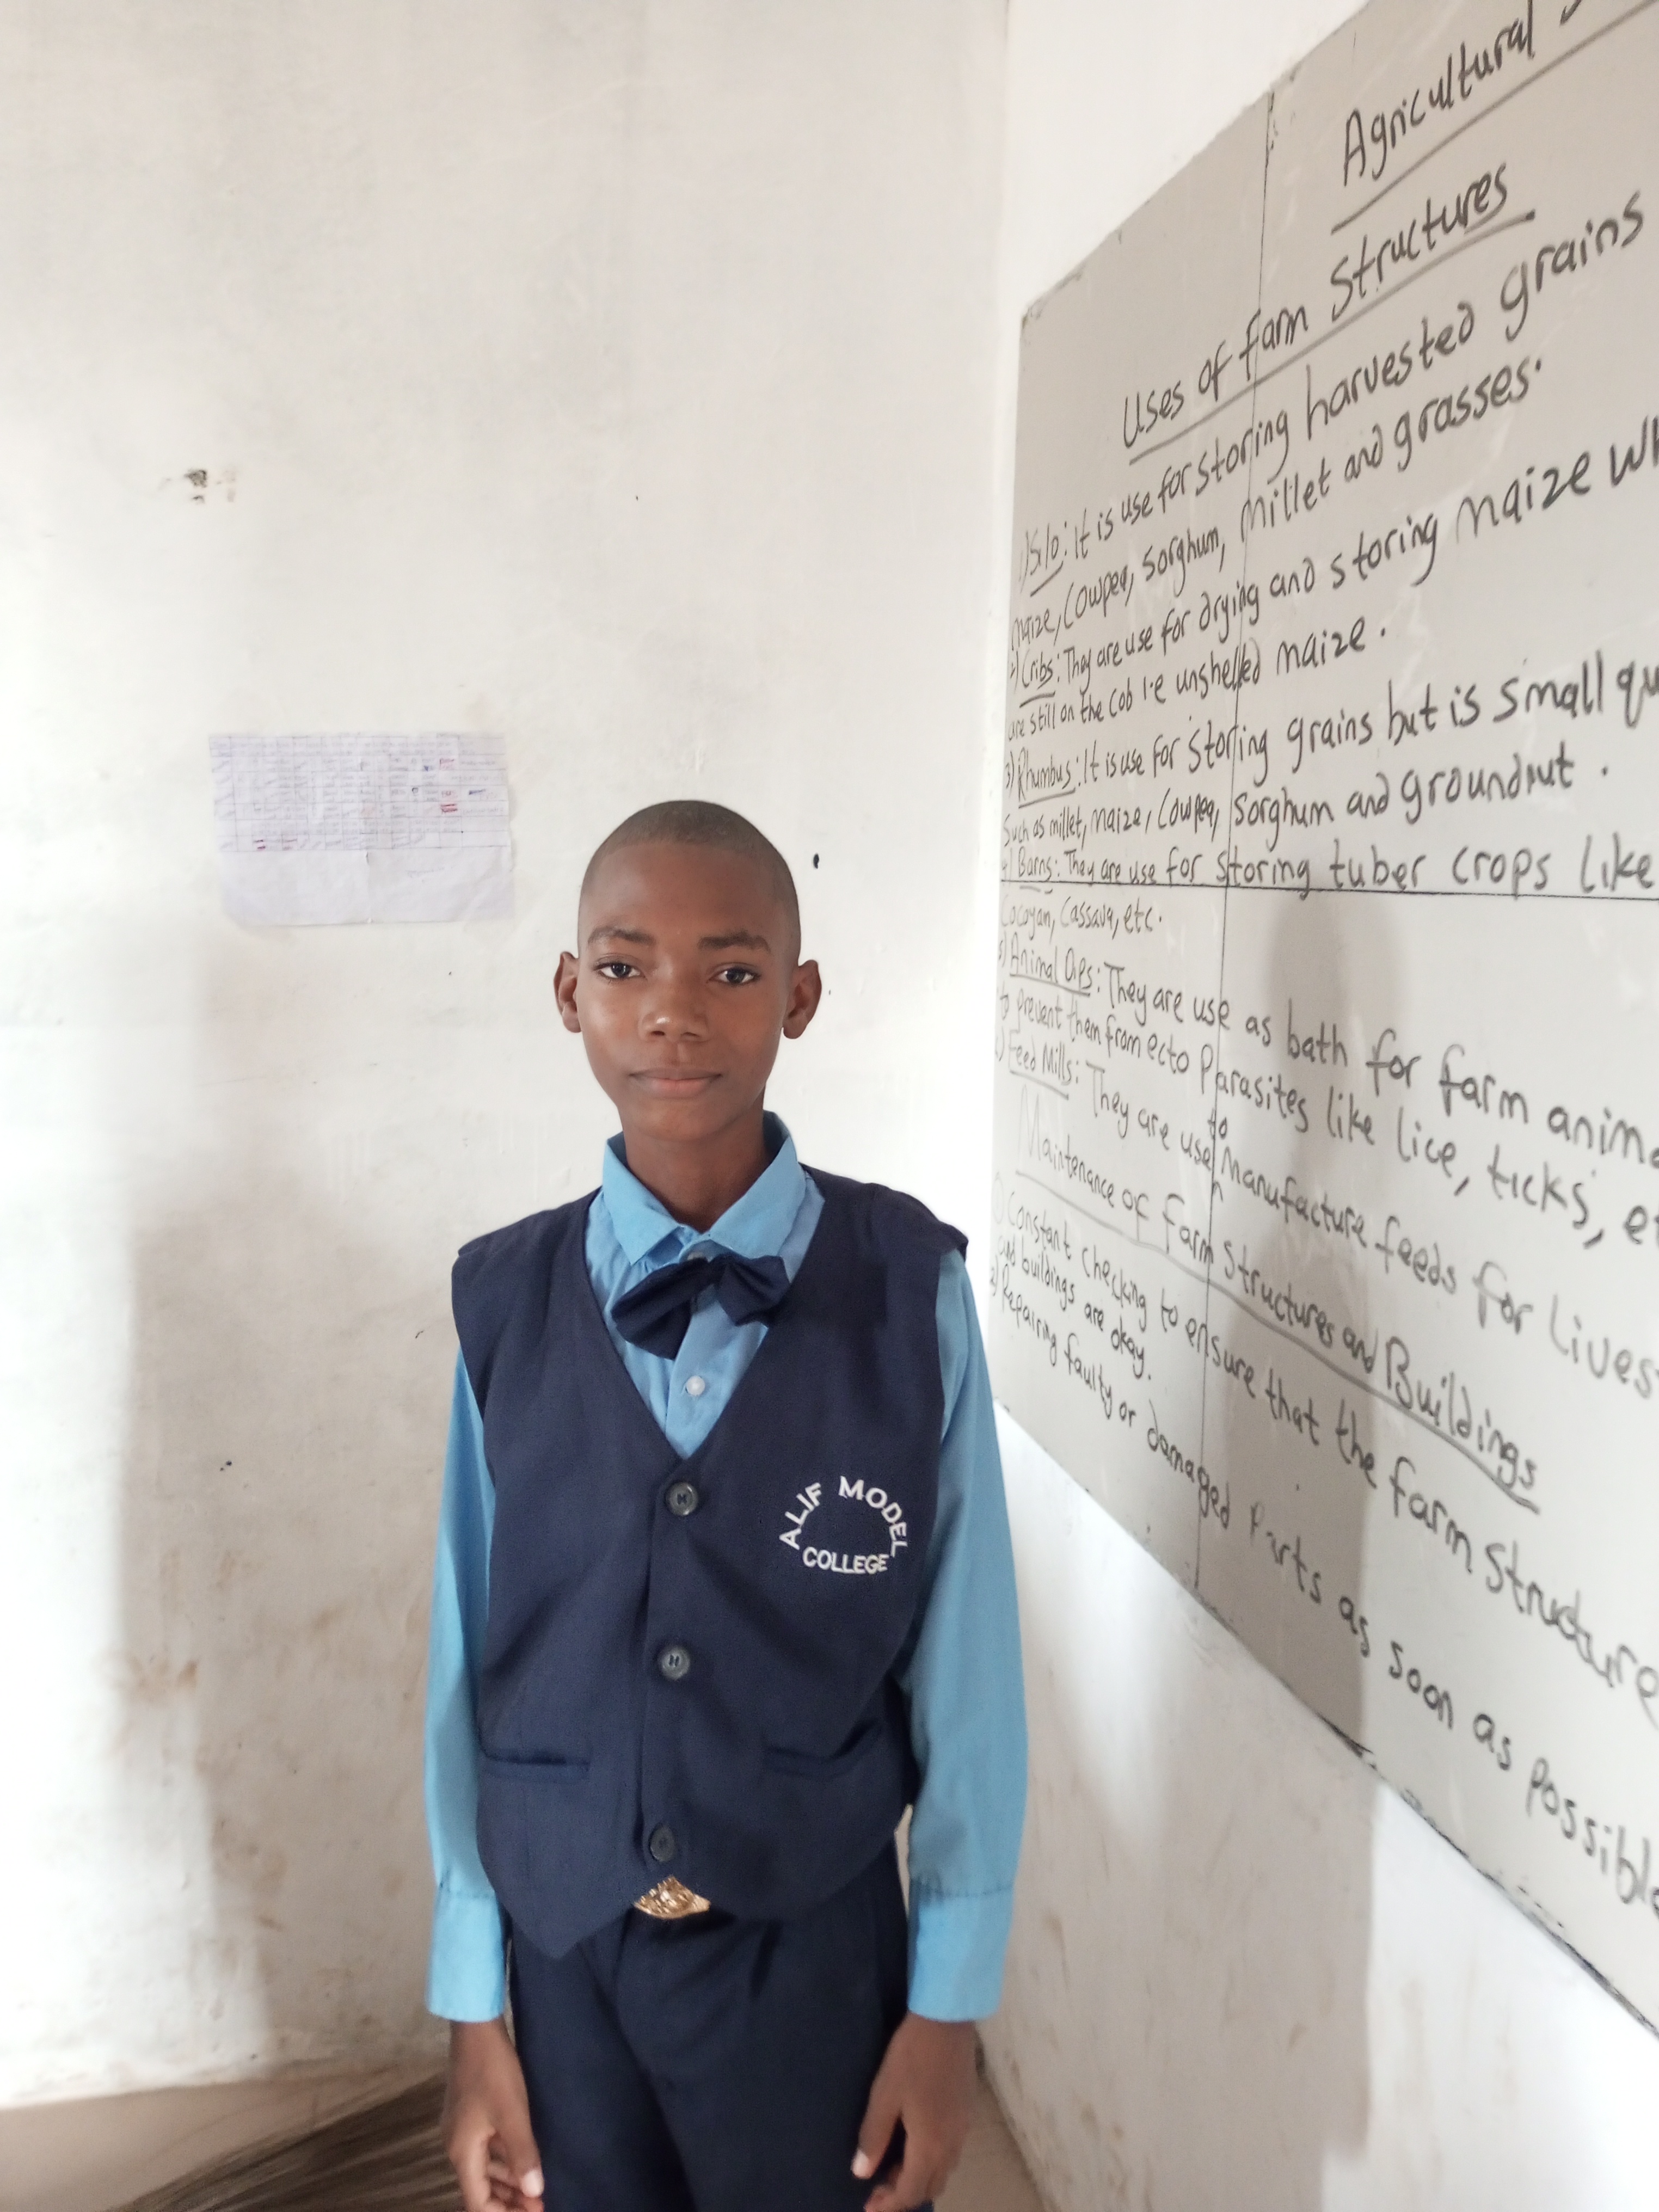 Agricultural
Uses of farm structures
1) Silo: It is use for storing harvested grains
maize, Cowpea, Sorghum, millet and grasses.
2) Cribs: They are use for drying and storing maize
are still on the cob i.e unshelled maize.
3) Rhumbus: It is use for storing grains but is small
Such as millet, maize, Cowpea, Sorghum and groundnut.
4) Barns: They are use for storing tuber crops like
Cocoyam, Cassava, etc.
5) Animal Dips: They are use as bath for farm
to prevent them from ecto Parasites like lice, ticks,
Feed Mills: They are use to manufacture feeds for
Maintenance of farm structures and Buildings
1) Constant checking to ensure that the farm structure
and buildings are okay.
2) Repairing faulty or damaged Parts as soon as possible
ALIF MODEL
COLLEGE